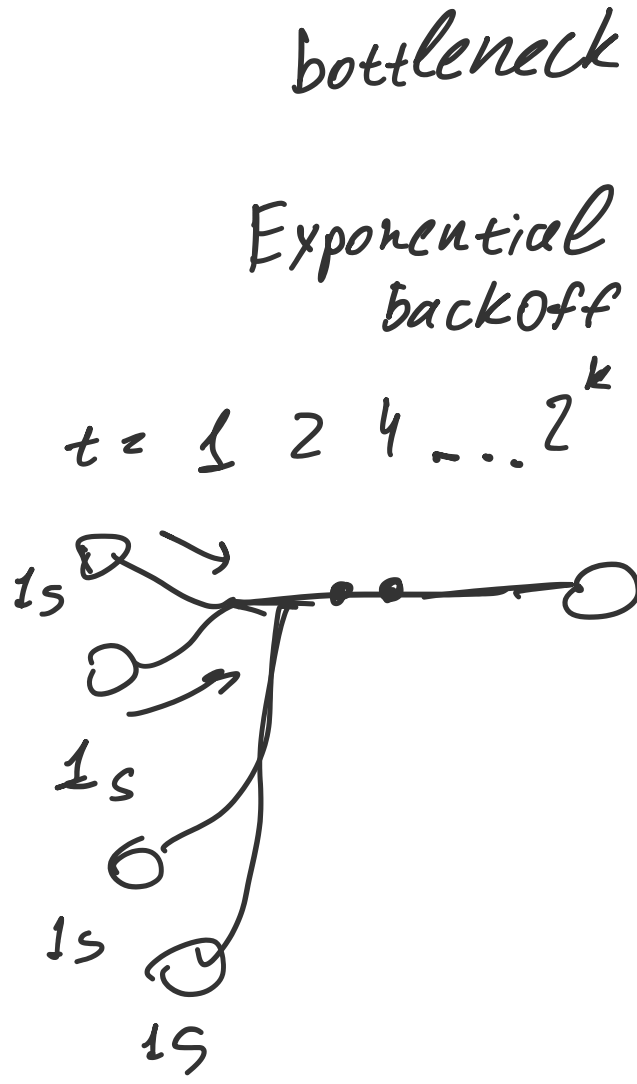 bottleneck
Exponential
backoff
t = 1 2 4 .... 2^k
1s
1s
1s
1s